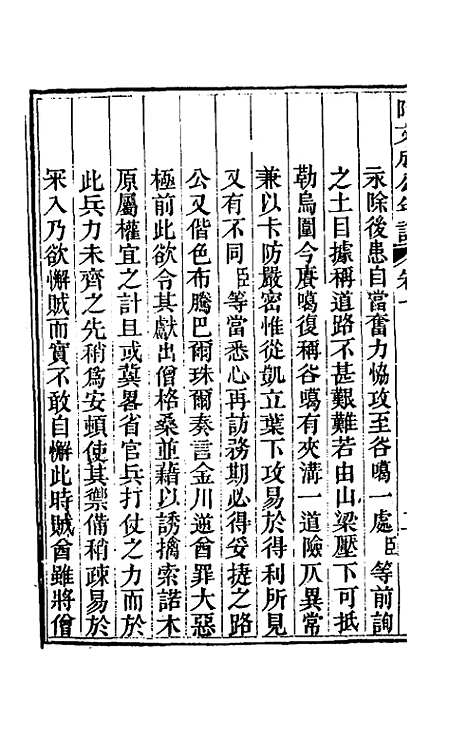 阿文成公年譜 卷七
永除後患自當奮力恊攻至谷噶一處臣等前詢
之土目據稱道路不甚艱難若由山梁壓下可抵
勒烏圍今賡噶復稱谷噶有夾溝一道險仄異常
兼以卡防嚴密惟從凱立葉下攻易於得利所見
又有不同臣等當悉心再訪務期必得妥捷之路
公又偕色布騰巴爾珠爾奏言金川逆酋罪大惡
極前此欲令其獻出僧格桑並藉以誘擒索諾木
原屬權宜之計且或冀畧省官兵打仗之力而於
此兵力未齊之先稍爲安頓使其禦備稍疎易於
罙入乃欲懈賊而實不敢自懈此時賊酋雖將僧